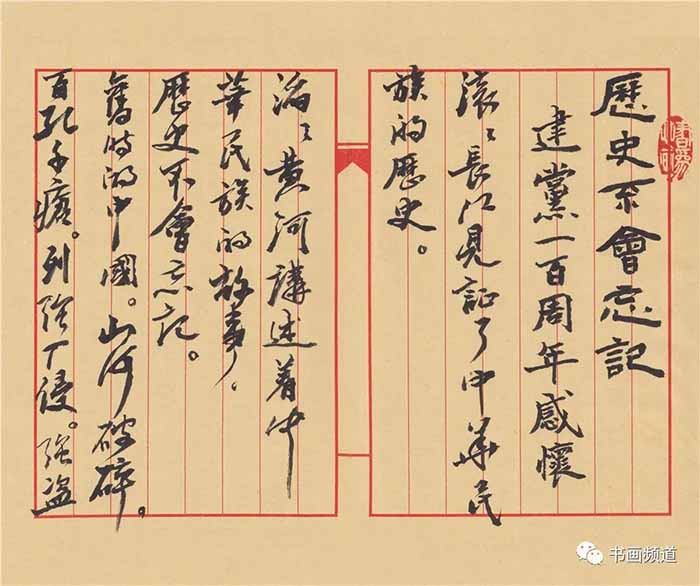 歷史不會忘記
建黨一百周年感懷
滚〻長江見証了中華民
族的歷史。
滔〻黄河講述着中
華民族的故事。
歷史不會忘記。
舊時的中國。山河破碎。
百孔千瘡。列强入侵。强盗
书画频道